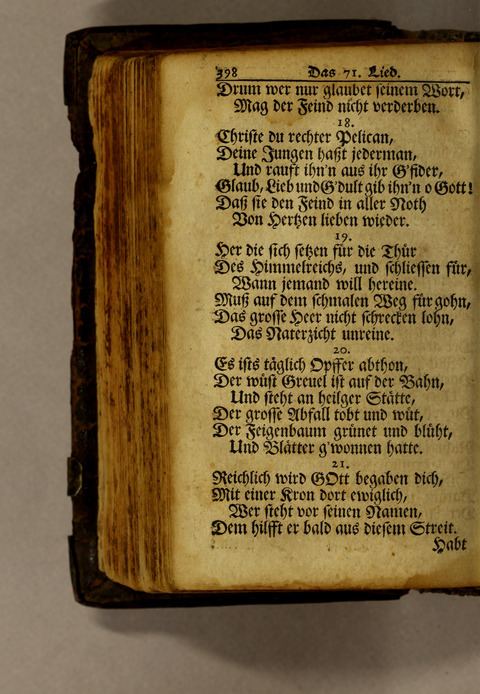 398 Das 71. Lied.
Drum wer nur glaubet seinem Wort,
Mag der Feind nicht verderben.
18.
Christe du rechter Pelican,
Deine Jungen haßt jederman,
Und rauft ihn'n aus ihr G'fider,
Glaub, Lieb und G'dult gib ihn'n o Gott!
Daß sie den Feind in aller Noth
Von Hertzen lieben wieder.
19.
Her die sich setzen für die Thür
Des Himmelreichs, und schliessen für,
Wann jemand will hereine.
Muß auf dem schmalen Weg für gohn,
Das grosse Heer nicht schrecken lohn,
Das Naterzicht unreine.
20.
Es ists täglich Opffer abthon,
Der wüst Greuel ist auf der Bahn,
Und steht an heilger Stätte,
Der grosse Abfall tobt und wüt,
Der Feigenbaum grünet und blüht,
Und Blätter g'wonnen hatte.
21.
Reichlich wird GOtt begaben dich,
Mit einer Kron dort ewiglich,
Wer steht vor seinen Namen,
Dem hilfft er bald aus diesem Streit.
Habt